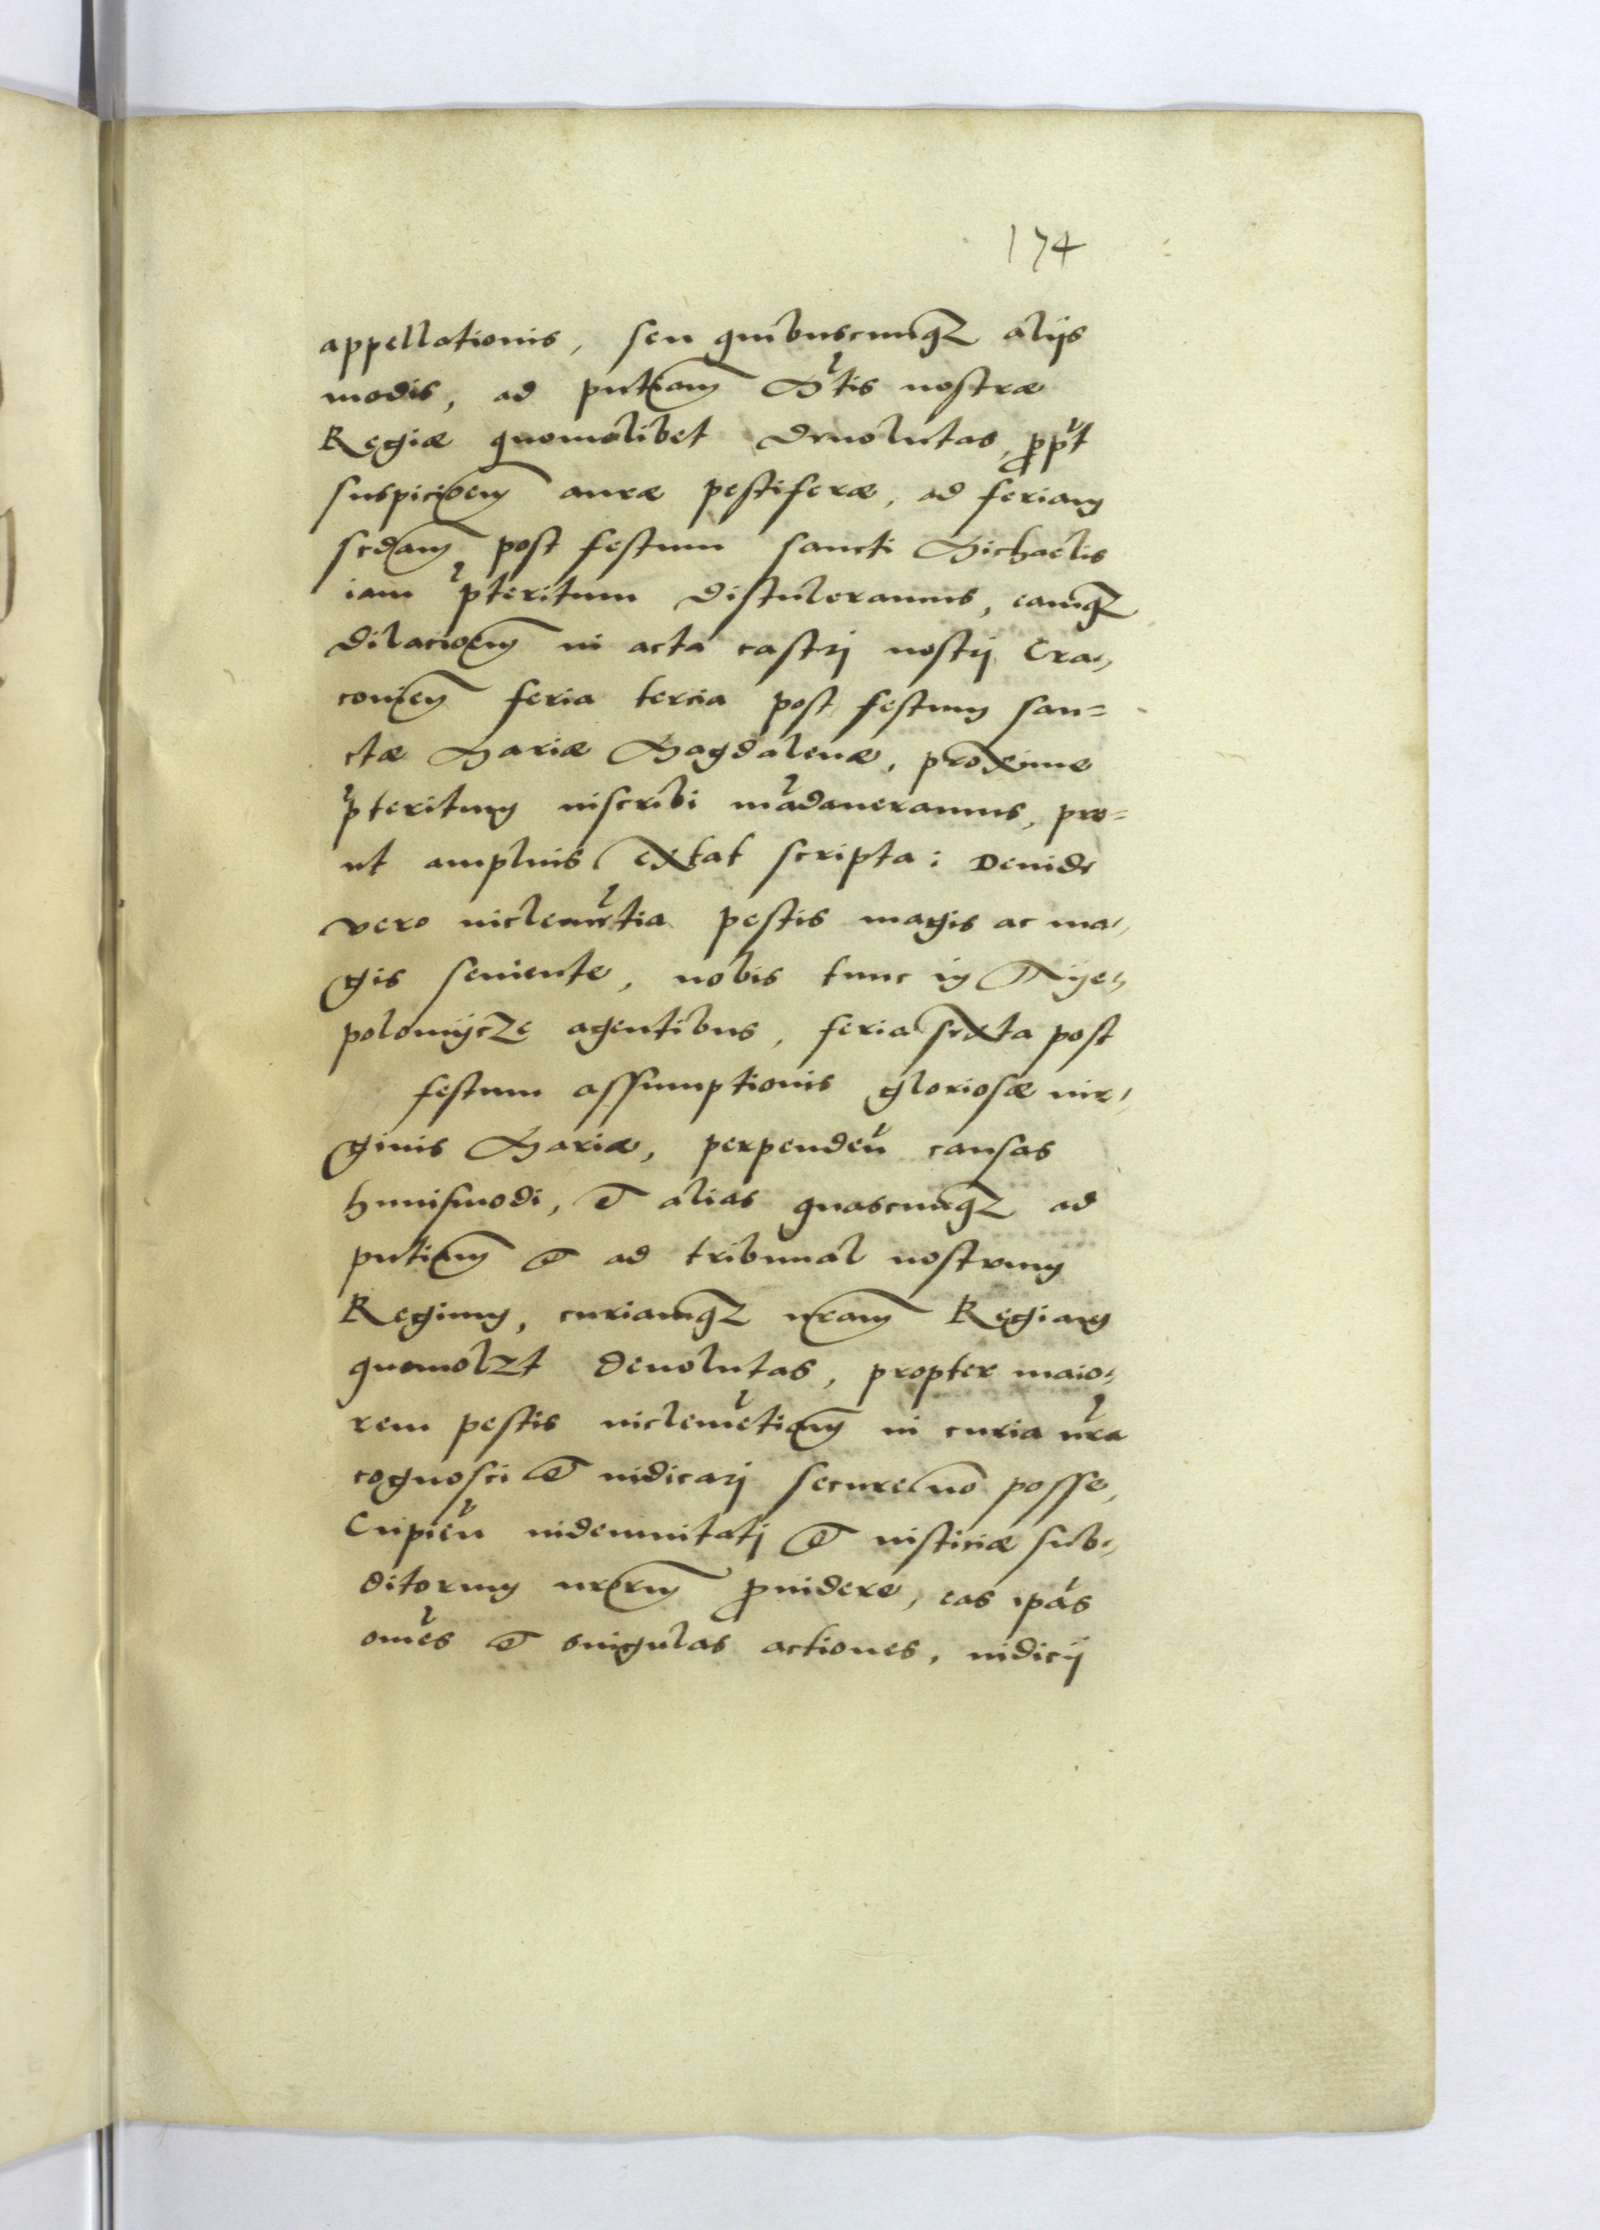 174
appellationis, seu quibuscunqz aliis
modis, ad pntiam Mtis nostræ
Regiæ quomolibet deuolutas, propt
suspicioem auræ pestiferæ, ad feriam
scdam post festum sancti Michaelis
iam pteritum distuleramus, eamqz
dilacioem in acta castrj nostrj Cra-
couien feria tercia post festum san=
ctæ Mariæ Magdalenæ, proxime
pteritum inscribi madaueramus, pro=
ut amplius extat scripta: Deinde
vero inclemetia pestis magis ac ma-
gis seuiente, nobis tunc in Nye-
polomijcze agentibus, feria sexta post
festum assumptionis gloriosæ uir-
ginis Mariæ, perpenden causas
huiusmodi, et alias quascunqz ad
pntiam et ad tribunal nostrum
Regium, curiamqz nram Regiam
quomolzt deuolutas, propter maio-
rem pestis inclemetiam in curia nra
cognosci et iudicarj secure no posse,
Cupien indemnitatj et iusticiæ sub-
ditorum nrorum prouidere, eas ipas
omes et singulas actiones, iudicij